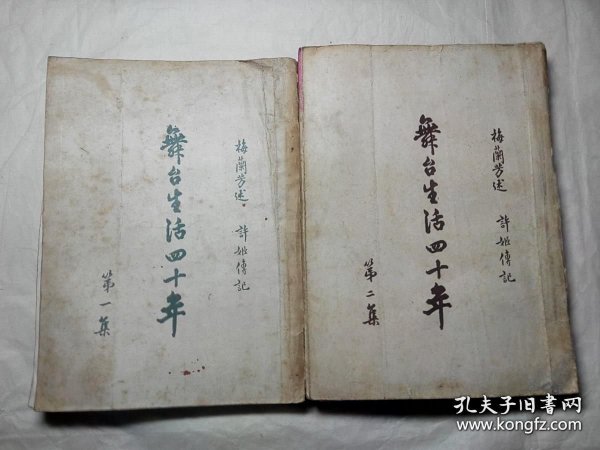 梅蘭芳述 許姬傳記
舞台生活四十年
第一集
梅蘭芳述 許姬傳記
舞台生活四十年
第二集
孔夫子旧书网
www.kongfz.com